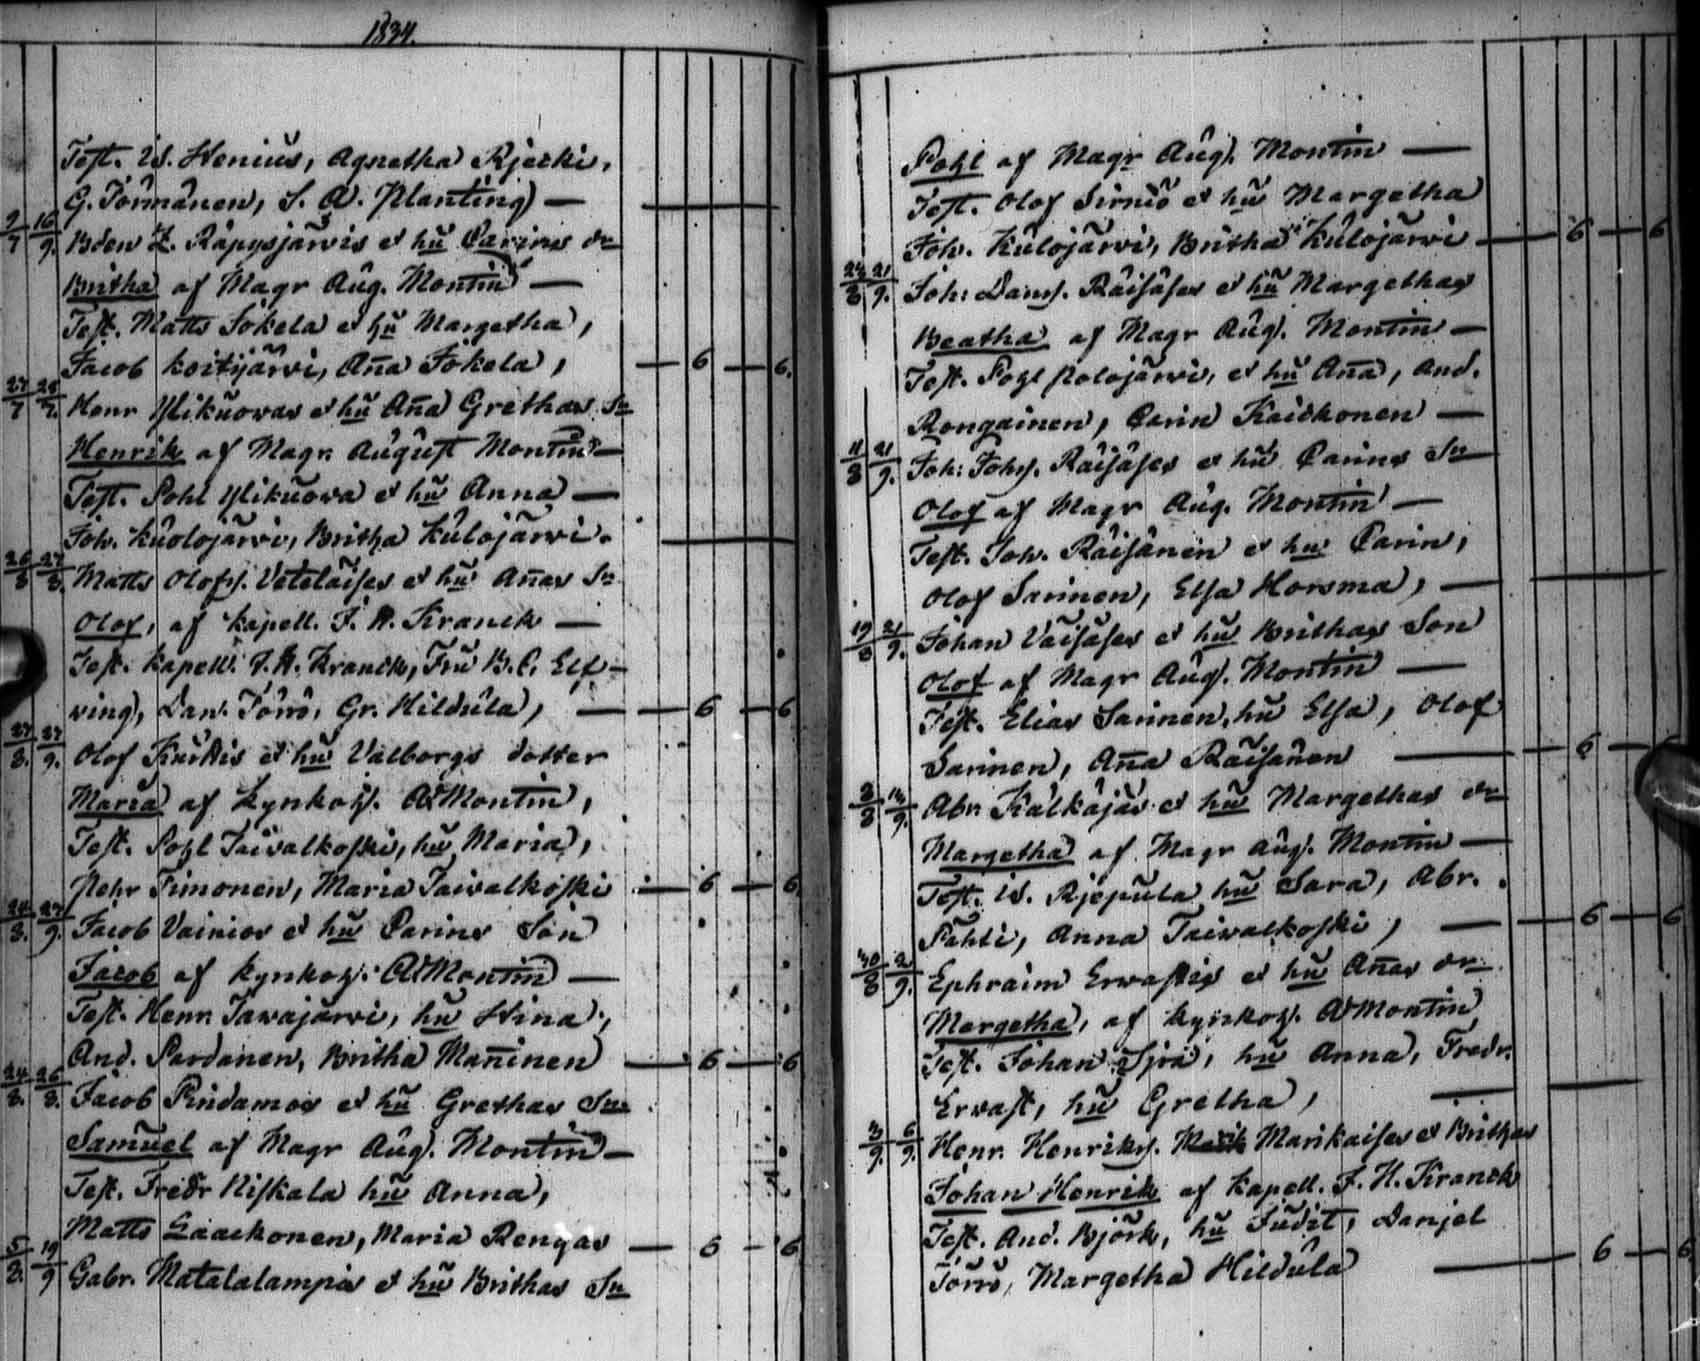 1834.
Test. Is. Stenius, Agnetha Rjecki,
G. Törmänen, S. A. Planting —
9/7 16/9. Bden Z. Räpysjärvis et hu Carins dr
Britha af Magr Aug. Montin —
Test. Matts Jokela et hu Margetha,
Jacob Koitijärvi, Aña Jokela, — 6 — 6.
27/7 28/7. Henr Ylikuovas et hu Aña Grethas Sn
Henrik af Magr. August Montin —
Test. Pohl Ylikuova et hu Anna —
Joh. Kuolojärvi, Britha Kulojärvi.
26/8 27/8. Matts Olofs. Veteläises et hu Añas Sn
Olof, af Kapell. F. H. Kranck —
Test. Kapell. F. H. Kranck, Fru B. C. Elf-
ving, Dan. Törrö, Gr. Hildula, — 6 — 6
27/8. 27/9. Olof Kurttis et hu Valborgs dotter
Maria af Kynkoh. A Montin,
Test. Pohl Taivalkoski, hu Maria,
Pehr Timonen, Maria Taivalkoski — 6 — 6
24/8. 27/9. Jacob Vainios et hu Carins Son
Jacob af Kynkoh. A Montin —
Test. Henr. Javajärvi, hu Stina,
And. Pardanen, Britha Mañinen — 6 — 6
24/8. 26/8. Jacob Pindamos et hu Grethas Sn
Samuel af Magr Aug. Montin —
Test. Fredr Niskala hu Anna,
Matts Laackonen, Maria Rengas — 6 — 6
5/8. 19/9 Gabr. Matalalampis et hu Brithas Sn
Pohl af Magr Aug. Montin —
Test. Olof Sirniö et hu Margetha
Joh. Kulojärvi, Britha Kulojärvi — 6 — 6
24/8 21/9. Joh: Dans. Räisäses et hu Margethas
Beatha af Magr Aug. Montin —
Test. Pohl Polojärvi, et hu Aña, And.
Rongainen, Carin Kaickonen —
11/8 21/9. Joh: Johs. Räisäses et hu Carins Sn
Olof af Magr Aug. Montin —
Test. Joh. Räisänen et hu Carin,
Olof Sarinen, Elsa Horsma, —
19/8 21/9. Johan Väisäses et hu Brithas Son
Olof af Magr Aug. Montin —
Test. Elias Sarinen, hu Elsa, Olof
Sarinen, Aña Räisänen — 6 — 6
3/8 14/9. Abr. Kälkäjäs et hu Margethas dr
Margetha af Magr Aug. Montin —
Test. Is. Rjepula hu Sara, Abr.
Fahli, Anna Taivalkoski, — 6 — 6
30/8 2/9. Ephraim Ervastis et hu Añas dr
Margetha, af Kynkoh. A Montin
Test. Johan Sjra, hu Anna, Fredr.
Ervast, hu Gretha, —
3/9. 6/9. Henr. Henriks. Marikaises et Brithas
Johan Henrik af Kapell. F. H. Kranck
Test. And. Björk, hu Judit, Danjel
Törrö, Margetha Hildula — 6 — 6